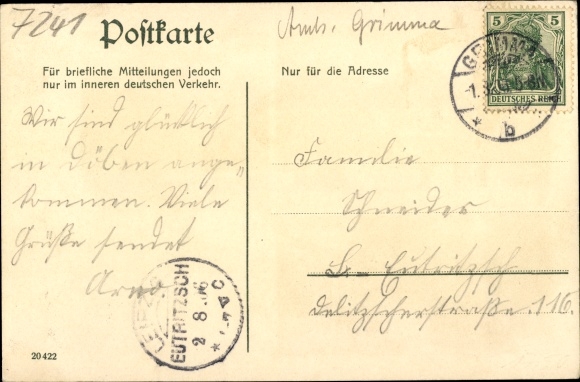 7241
Postkarte
Amh. Grimma
Für briefliche Mitteilungen jedoch
nur im inneren deutschen Verkehr.
Nur für die Adresse
5 5
DEUTSCHES REICH
GRIMMA
b
Wir sind glücklich
in Döben ange„
kommen. Viele
Grüße sendet
Arno.
Familie
Schneider
L. Eutritzsch
Delitzscherstraße. 116.
LEIPZIG
EUTRITZSCH
2 8 06
20422